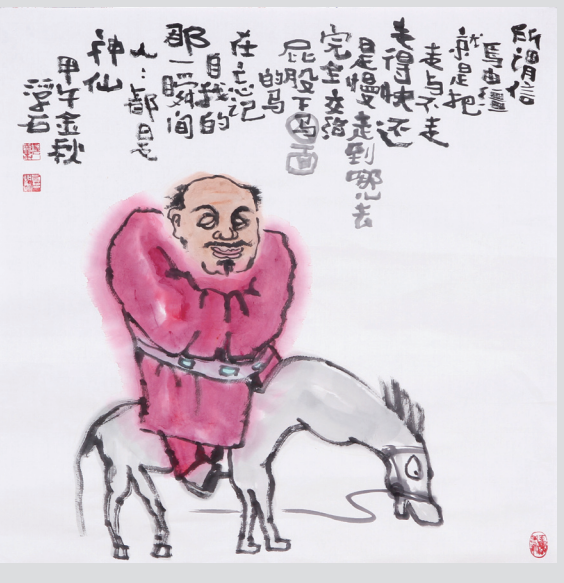 所谓信
马由缰
就是把
走与不走
走得快还
是慢走到哪儿去
完全交给
屁股下马面
的马
在忘记
自我的
那一瞬间
人：都是
神仙
甲午金秋
浮石